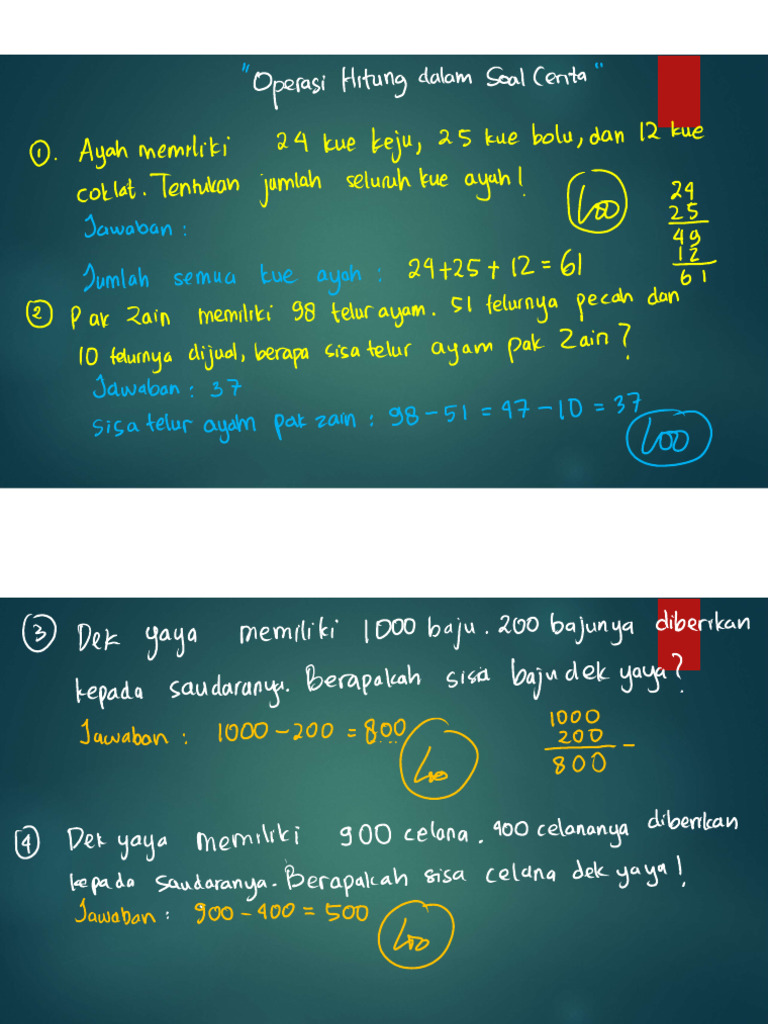 "Operasi Hitung dalam Soal Cerita"
1. Ayah memiliki 24 kue keju, 25 kue bolu, dan 12 kue
coklat. Tentukan jumlah seluruh kue ayah!
100
24
25
49
12
61
Jawaban :
Jumlah semua kue ayah : 24+25+12 = 61
2 Pak Zain memiliki 98 telur ayam. 51 telurnya pecah dan
10 telurnya dijual, berapa sisa telur ayam pak Zain?
Jawaban : 37
sisa telur ayam pak zain : 98 - 51 = 47 - 10 = 37
100
3 Dek yaya memiliki 1000 baju. 200 bajunya diberikan
kepada saudaranya. Berapakah sisa baju dek yaya?
Jawaban : 1000 - 200 = 800
100
1000
200 -
800
4 Dek yaya memiliki 900 celana. 400 celananya diberikan
kepada saudaranya. Berapakah sisa celana dek yaya!
Jawaban : 900 - 400 = 500
100